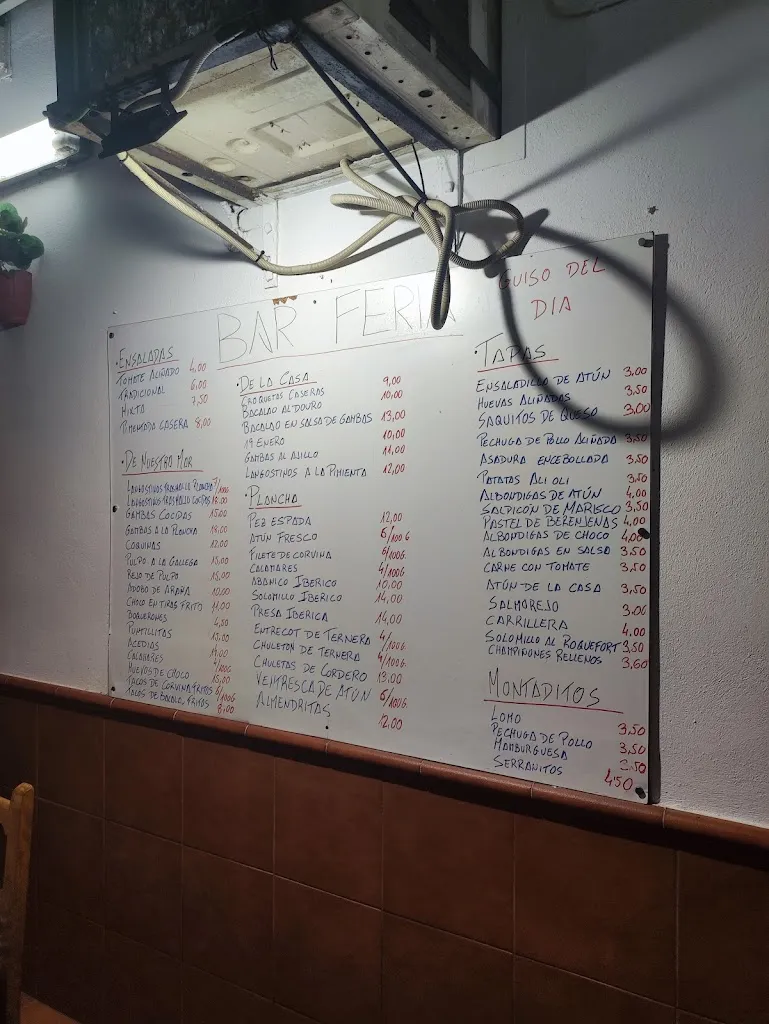 BAR FERIA
GUISO DEL
DIA
·ENSALADAS
TOMATE ALIÑADO 4,00
TRADICIONAL 6,00
MIXTA 7,50
PIMENTADA CASERA 8,00
·DE NUESTRO MAR
LANGOSTINOS TRASMALLO PLANCHA
LANGOSTINOS TRASMALLO COCIDAS
GAMBAS COCIDAS 15.00
GAMBAS A LA PLANCHA
COQUINAS 12.00
PULPO A LA GALLEGA 15,00
REJO DE PULPO 15,00
ADOBO DE
CHOCO EN TIRAS FRITO 11,00
BOQUERONES
PUNTILLITAS
ACEDIAS
CALAMARES
HUEVOS DE CHOCO 15,00
TACOS DE CORVINA FRITOS 6/100G
TACOS DE BACALO, FRITOS 8,00
·DE LA CASA 9,00
CROQUETAS CASERAS 10,00
BACALAO AL DOURO
BACALAO EN SALSA DE GAMBAS 13,00
19 ENERO 10,00
GAMBAS AL AJILLO 11,00
LANGOSTINOS A LA PIMIENTA 12,00
·PLANCHA
PEZ ESPADA 12,00
ATÚN FRESCO 6/100G
FILETE DE CORVINA 6/100G.
CALAMARES 4/100G
ABANICO IBERICO 10,00
SOLOMILLO IBERICO 14,00
PRESA IBERICA 14,00
ENTRECOT DE TERNERA 4/100G
CHULETON DE TERNERA 4/100G.
CHULETAS DE CORDERO 13.00
VENTRESCA DE ATÚN 6/100G.
ALMENDRITAS 12.00
·TAPAS
ENSALADILLA DE ATÚN 3,00
HUEVAS ALIÑADAS 3,50
SAQUITOS DE QUESO 3,00
PECHUGA DE POLLO ALIÑADA 3,50
ASADURA ENCEBOLLADA 3,50
PATATAS ALI OLI 3,50
ALBONDIGAS DE ATÚN 4,00
SALPICON DE MARISCO 3,50
PASTEL DE BERENJENAS 4,00
ALBONDIGAS DE CHOCO 4,00
ALBONDIGAS EN SALSA 3,50
CARNE CON TOMATE 3,50
ATÚN DE LA CASA 3,50
SALMOREJO 3,00
CARRILLERA 4,00
SOLOMILLO AL ROQUEFORT 3,50
CHAMPIÑONES RELLENOS 3,60
MONTADITOS
LOMO 3,50
PECHUGA DE POLLO 3,50
HAMBURGUESA 3,50
SERRANITOS 4,50